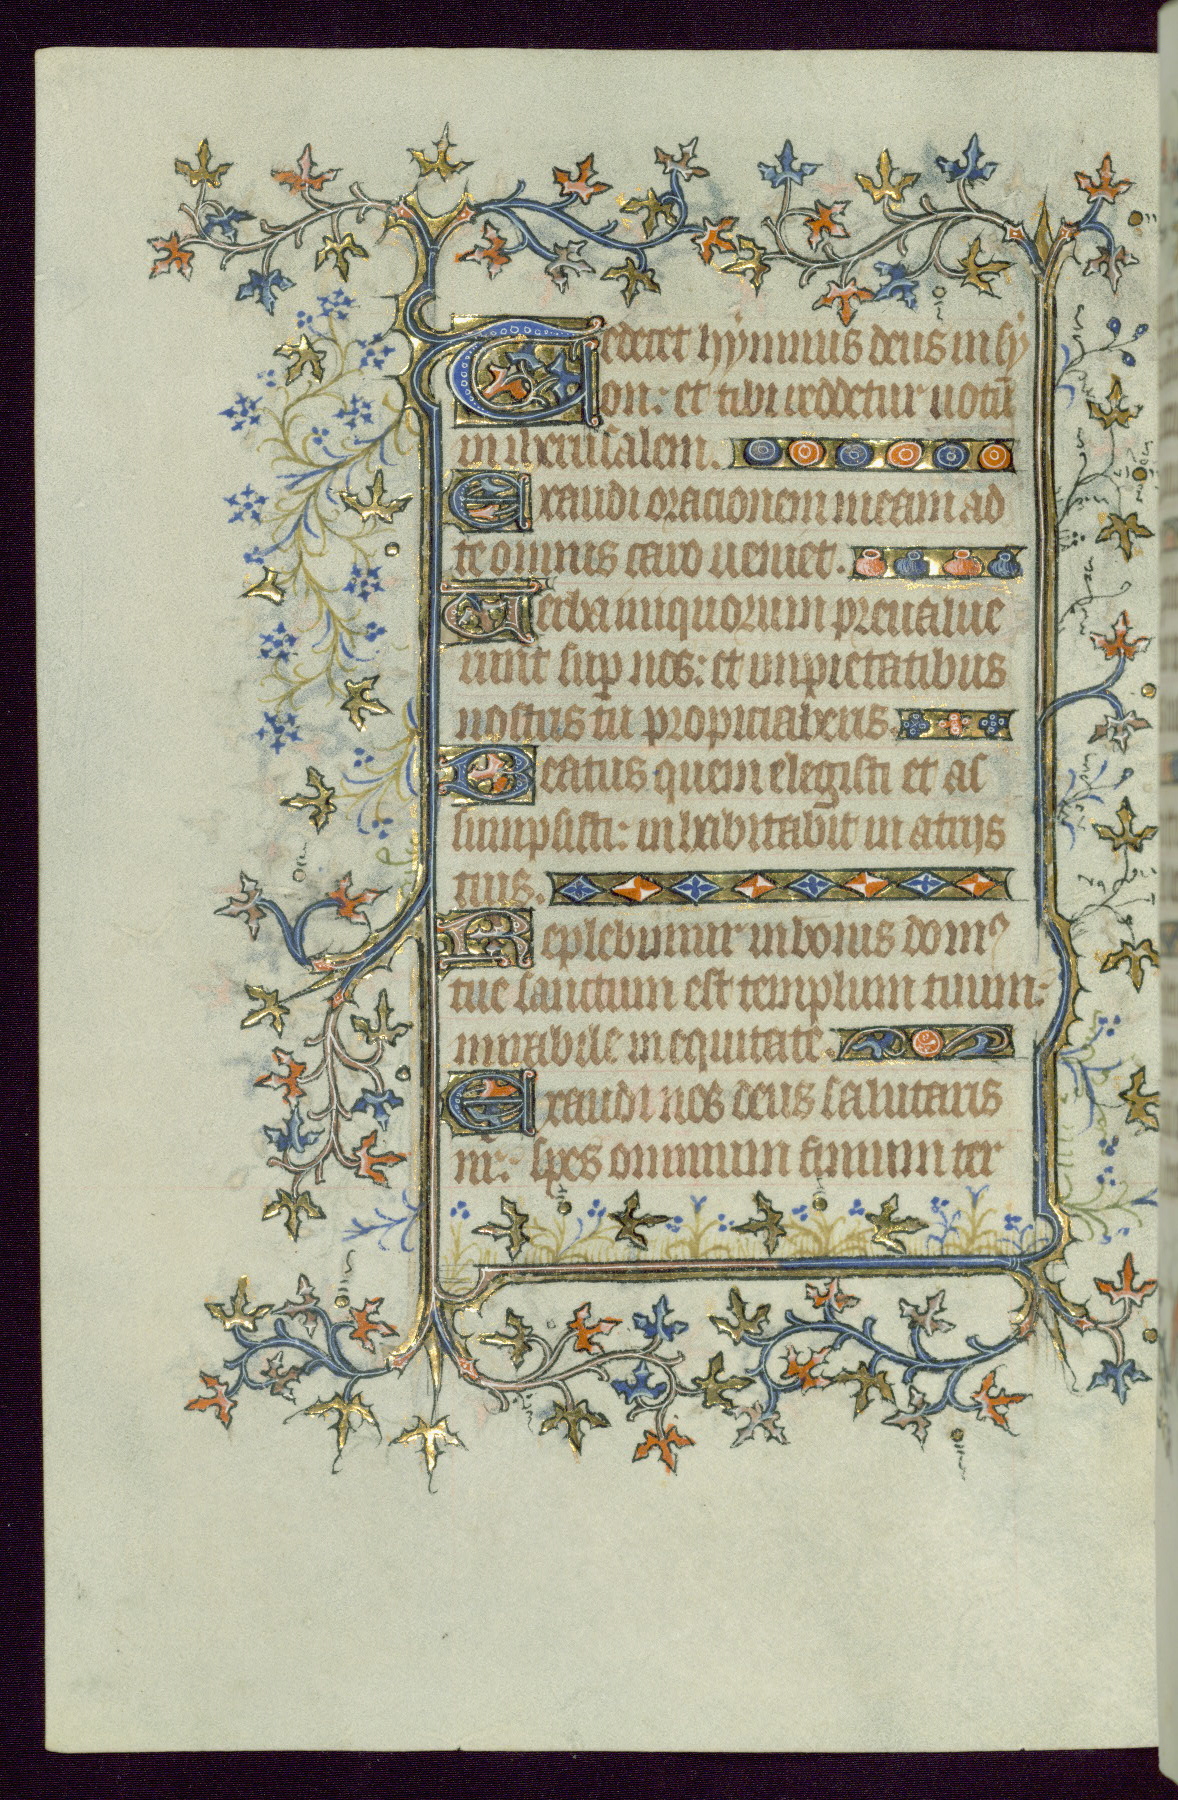 Te decet hỳmnus deus in sẏ
on: et tibi reddetur uotū
in iherusalem.
Exaudi orationem meam ad
te omnis caro ueniet.
Uerba iniquorum preualue
runt sup nos: et impietatibus
nostris tu propiciaberis.
Beatus quem elegisti et as
sumpsisti: inhabitabit in atrijs
tuis.
Replebimur in bonis domꝰ
tue sanctum est templum tuum:
mirabile in equitate.
Exaudi nos deus salutaris
nr̄: spes omnium finium ter